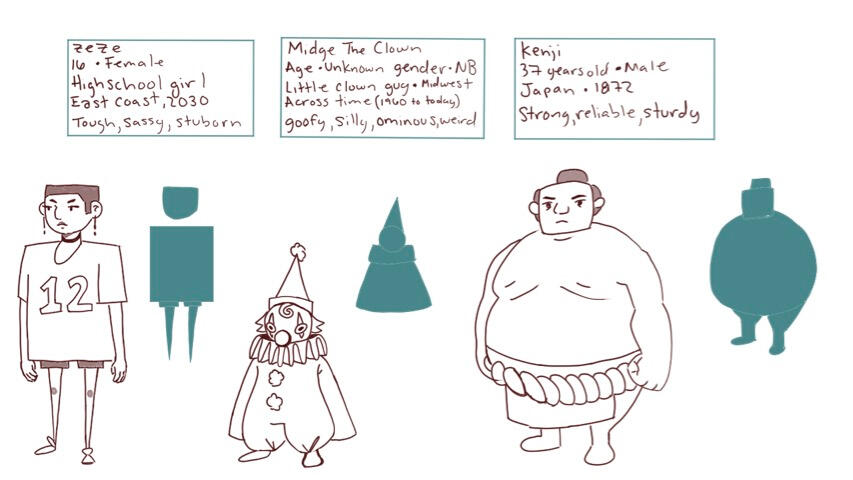 zeze
16 • Female
Highschool girl
East Coast, 2030
Tough, sassy, stuborn
Midge The Clown
Age • Unknown gender • NB
Little clown guy • Midwest
Across time (1960 to today)
goofy, silly, ominous, weird
Kenji
37 years old • Male
Japan • 1872
Strong, reliable, sturdy
12